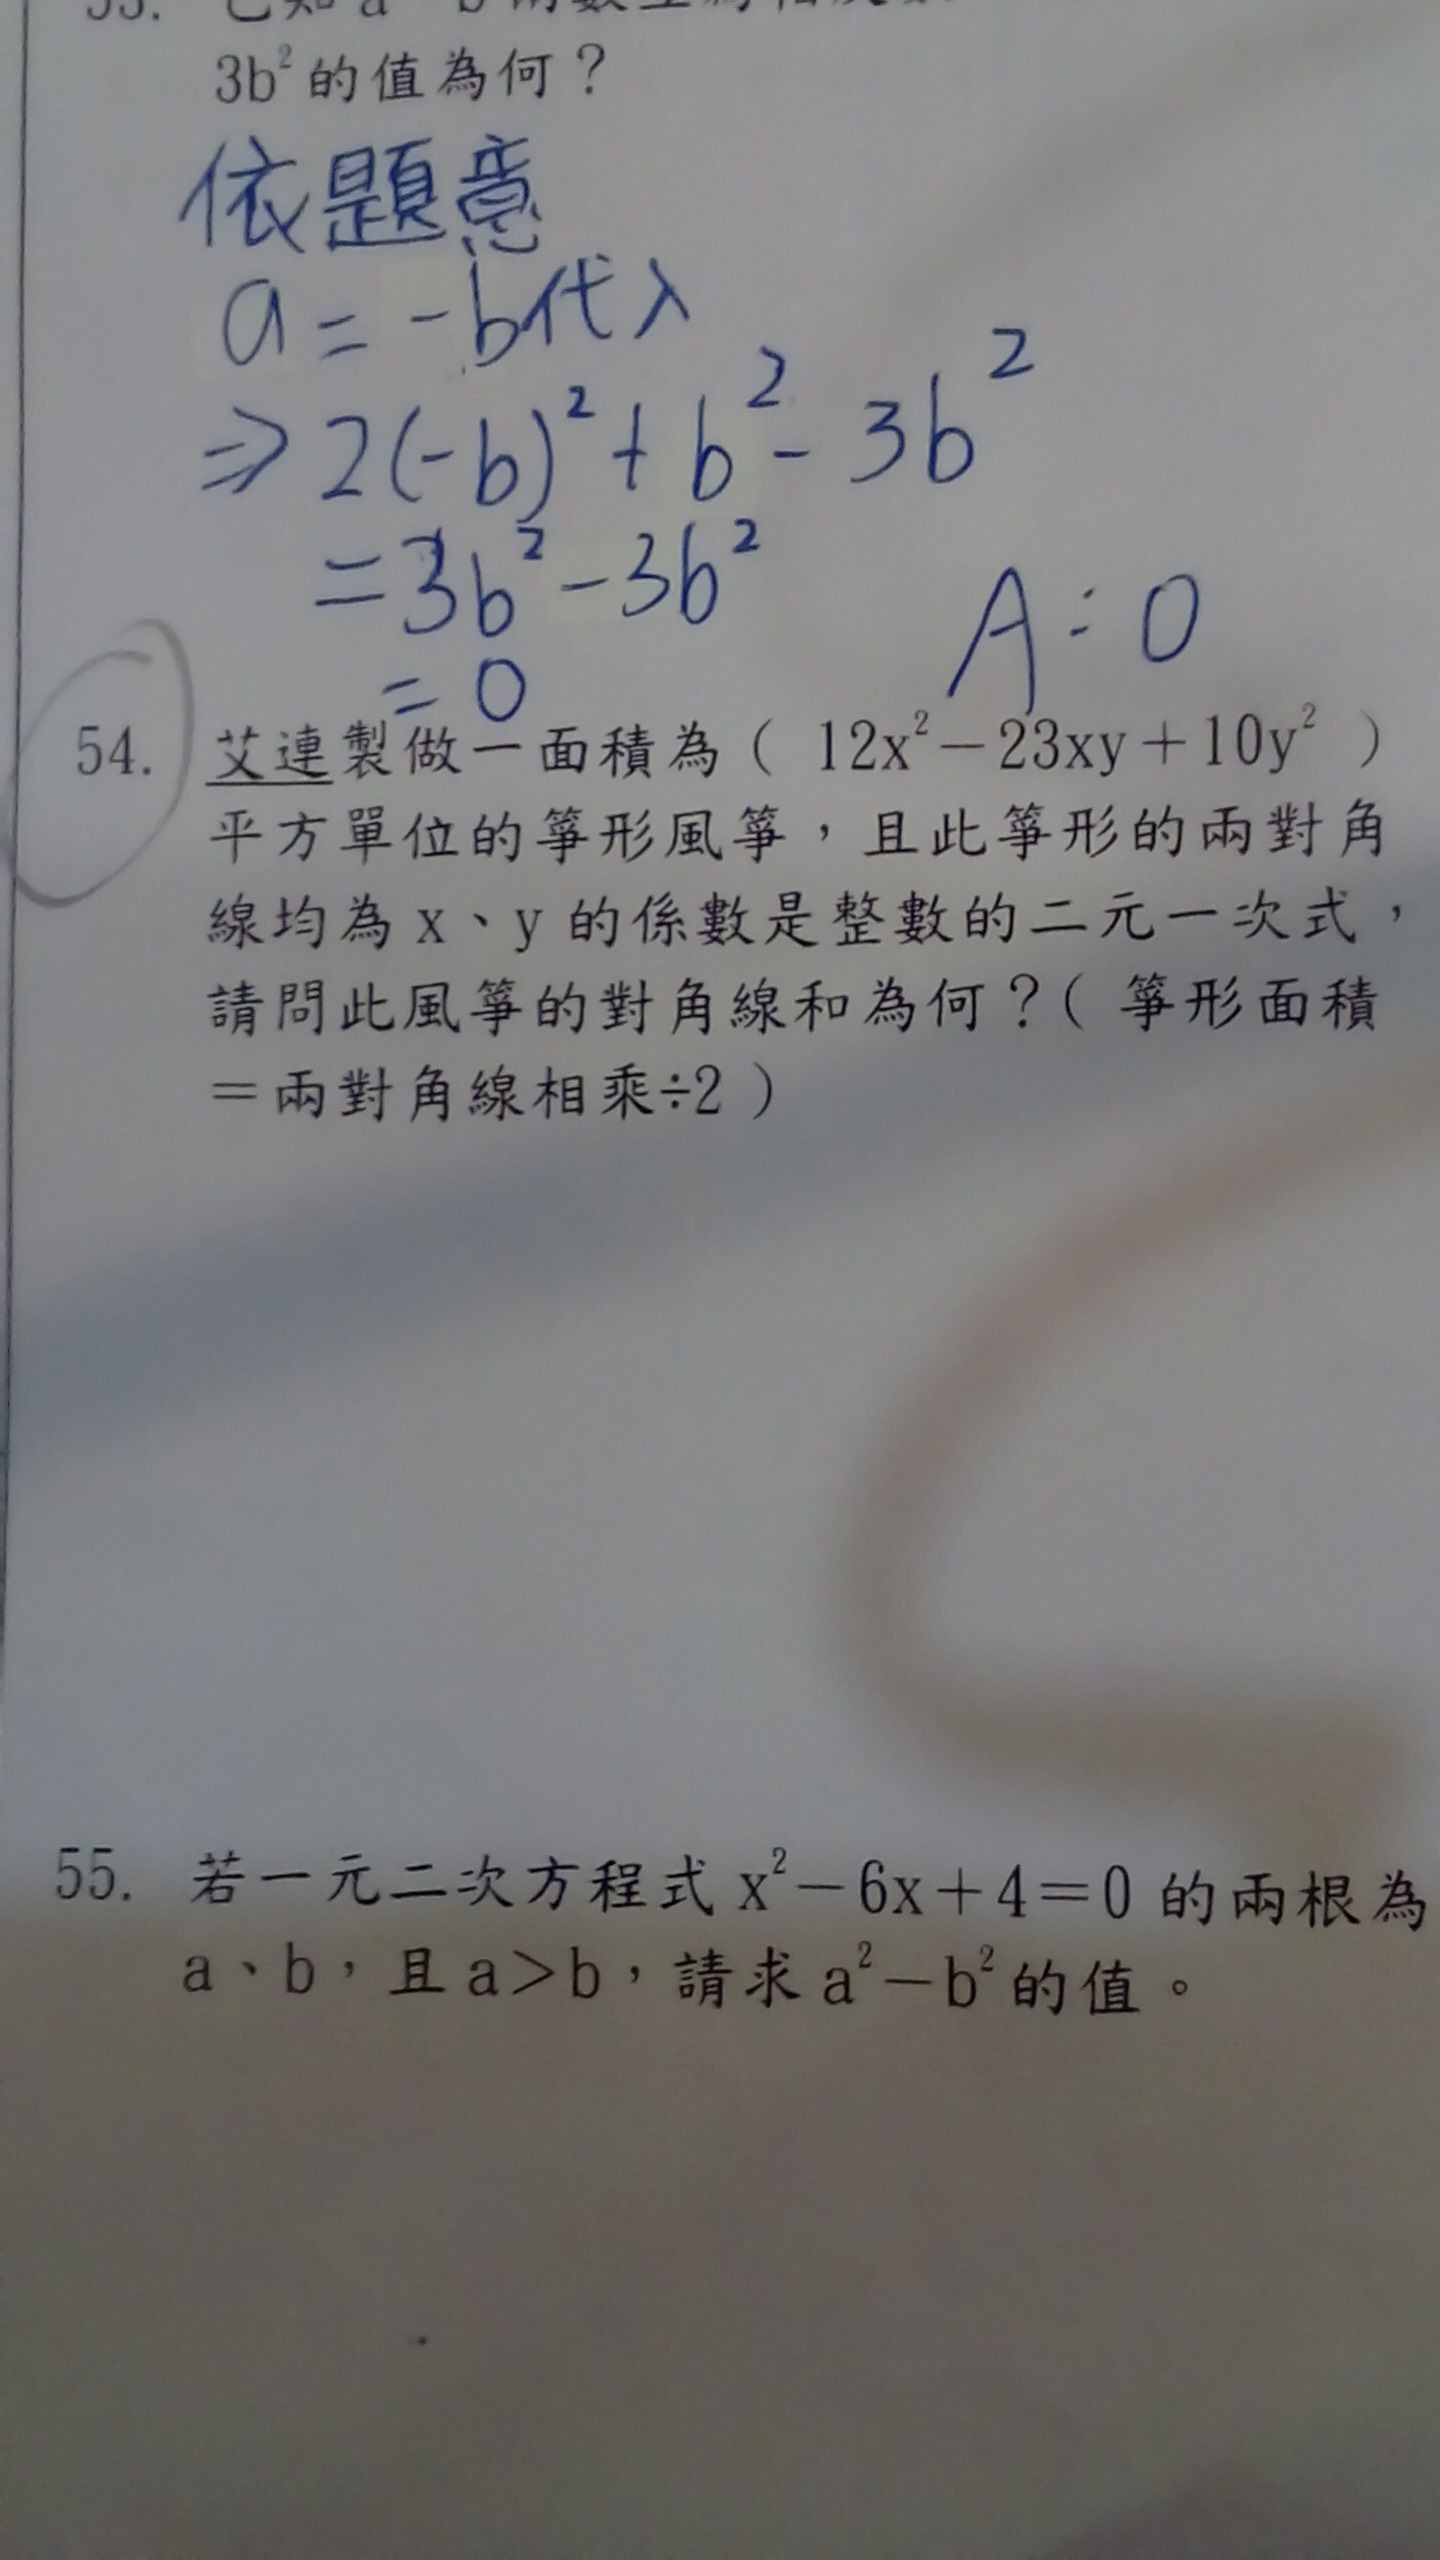 53. 已知 a、b 兩數互為相反數
3b²的值為何？
依題意
a = -b代入
⇒ 2(-b)² + b² - 3b²
= 3b² - 3b²
= 0
A：0
54. 艾連製做一面積為（ 12x²－23xy＋10y² ）
平方單位的箏形風箏，且此箏形的兩對角
線均為 x、y 的係數是整數的二元一次式，
請問此風箏的對角線和為何？（ 箏形面積
＝兩對角線相乘÷2 ）
55. 若一元二次方程式 x²－6x＋4＝0 的兩根為
a、b，且 a＞b，請求 a²－b² 的值。